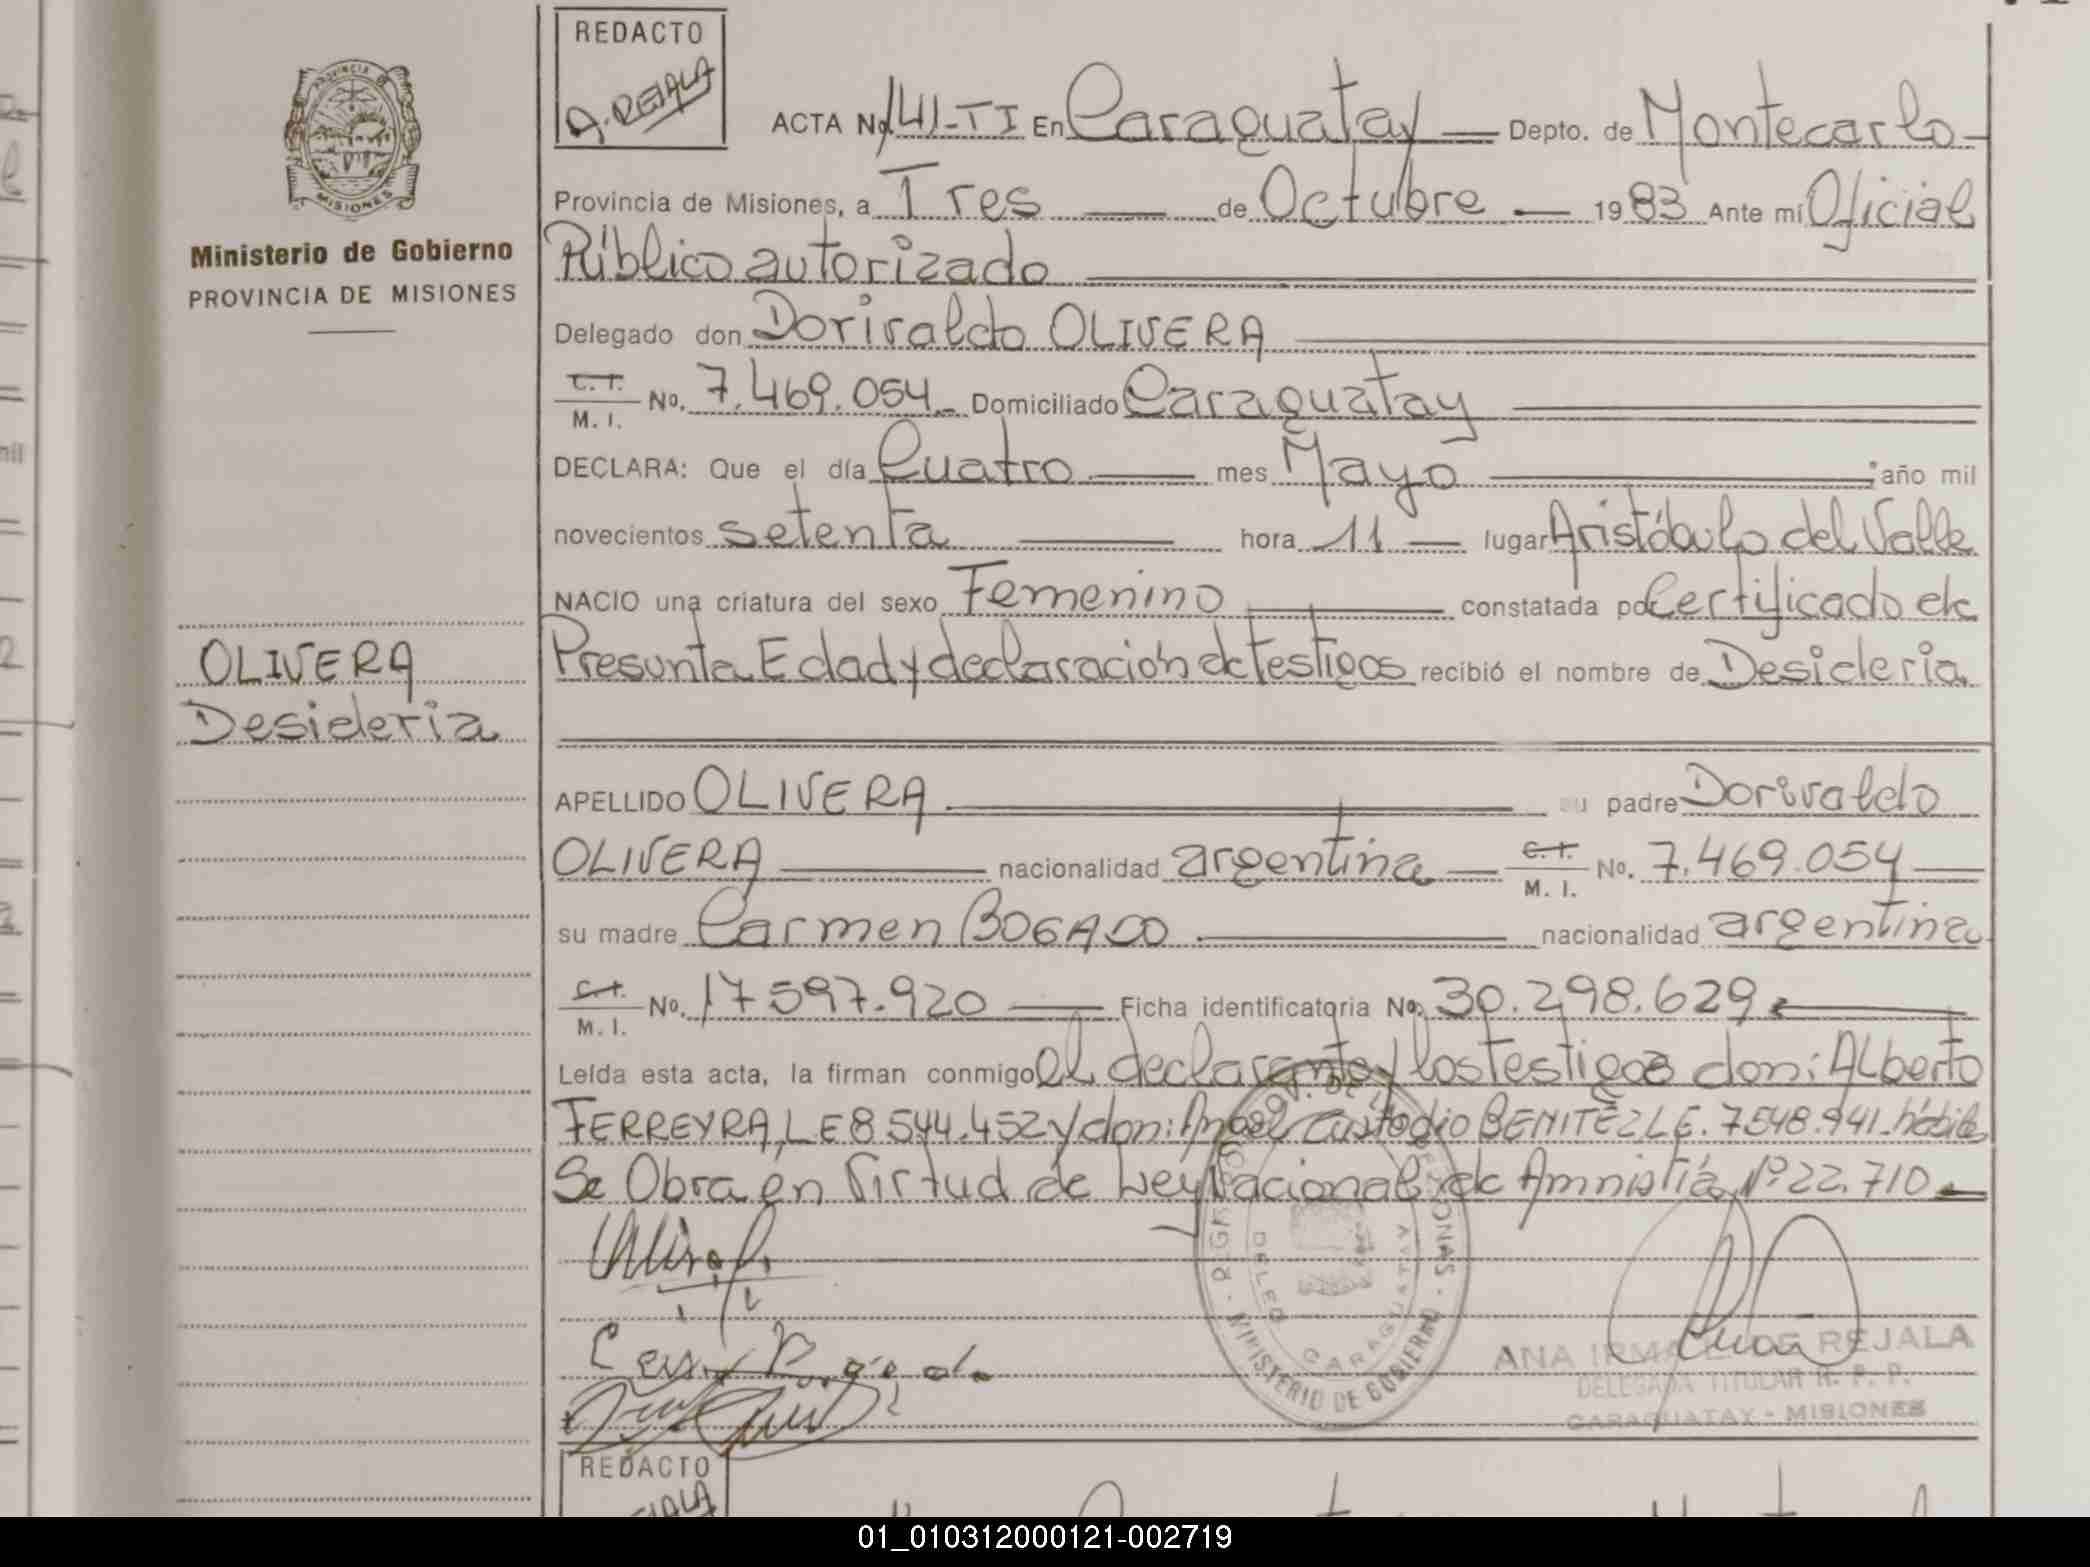 REDACTO
A. REJALA
PROVINCIA
MISIONES
Ministerio de Gobierno
PROVINCIA DE MISIONES
OLIVERA
Desideria
ACTA No 141-TI En Caraguatay Depto. de Montecarlo
Provincia de Misiones, a Tres de Octubre 1983 Ante mí Oficial
Público autorizado
Delegado don Dorivaldo OLIVERA
C.I. M. I. No. 7.469.054 Domiciliado Caraguatay
DECLARA: Que el día Cuatro mes Mayo año mil
novecientos setenta hora 11 lugar Aristóbulo del Valle
NACIO una criatura del sexo Femenino constatada por Certificado de
Presunta Edad y declaración de testigos recibió el nombre de Desideria
APELLIDO OLIVERA su padre Dorivaldo
OLIVERA nacionalidad argentina C.I. M. I. No. 7.469.054
su madre Carmen BOGADO nacionalidad argentina
C.I. M. I. No. 17.597.920 Ficha identificatoria No. 30.298.629
Leída esta acta, la firman conmigo el declarante y los testigos don: ALberto
FERREYRA, L E 8.544.452 y don: Angel Custodio BENITEZ L E. 7.548.941. hábiles
Se Obra en Virtud de Ley Nacional de Amnistía Nº 22.710
MINISTERIO DE GOBIERNO
CARAGUATAY
ANA IRMA REJALA
DELEGADA TITULAR R. P. P.
CARAGUATAY - MISIONES
REDACTO
01_010312000121-002719